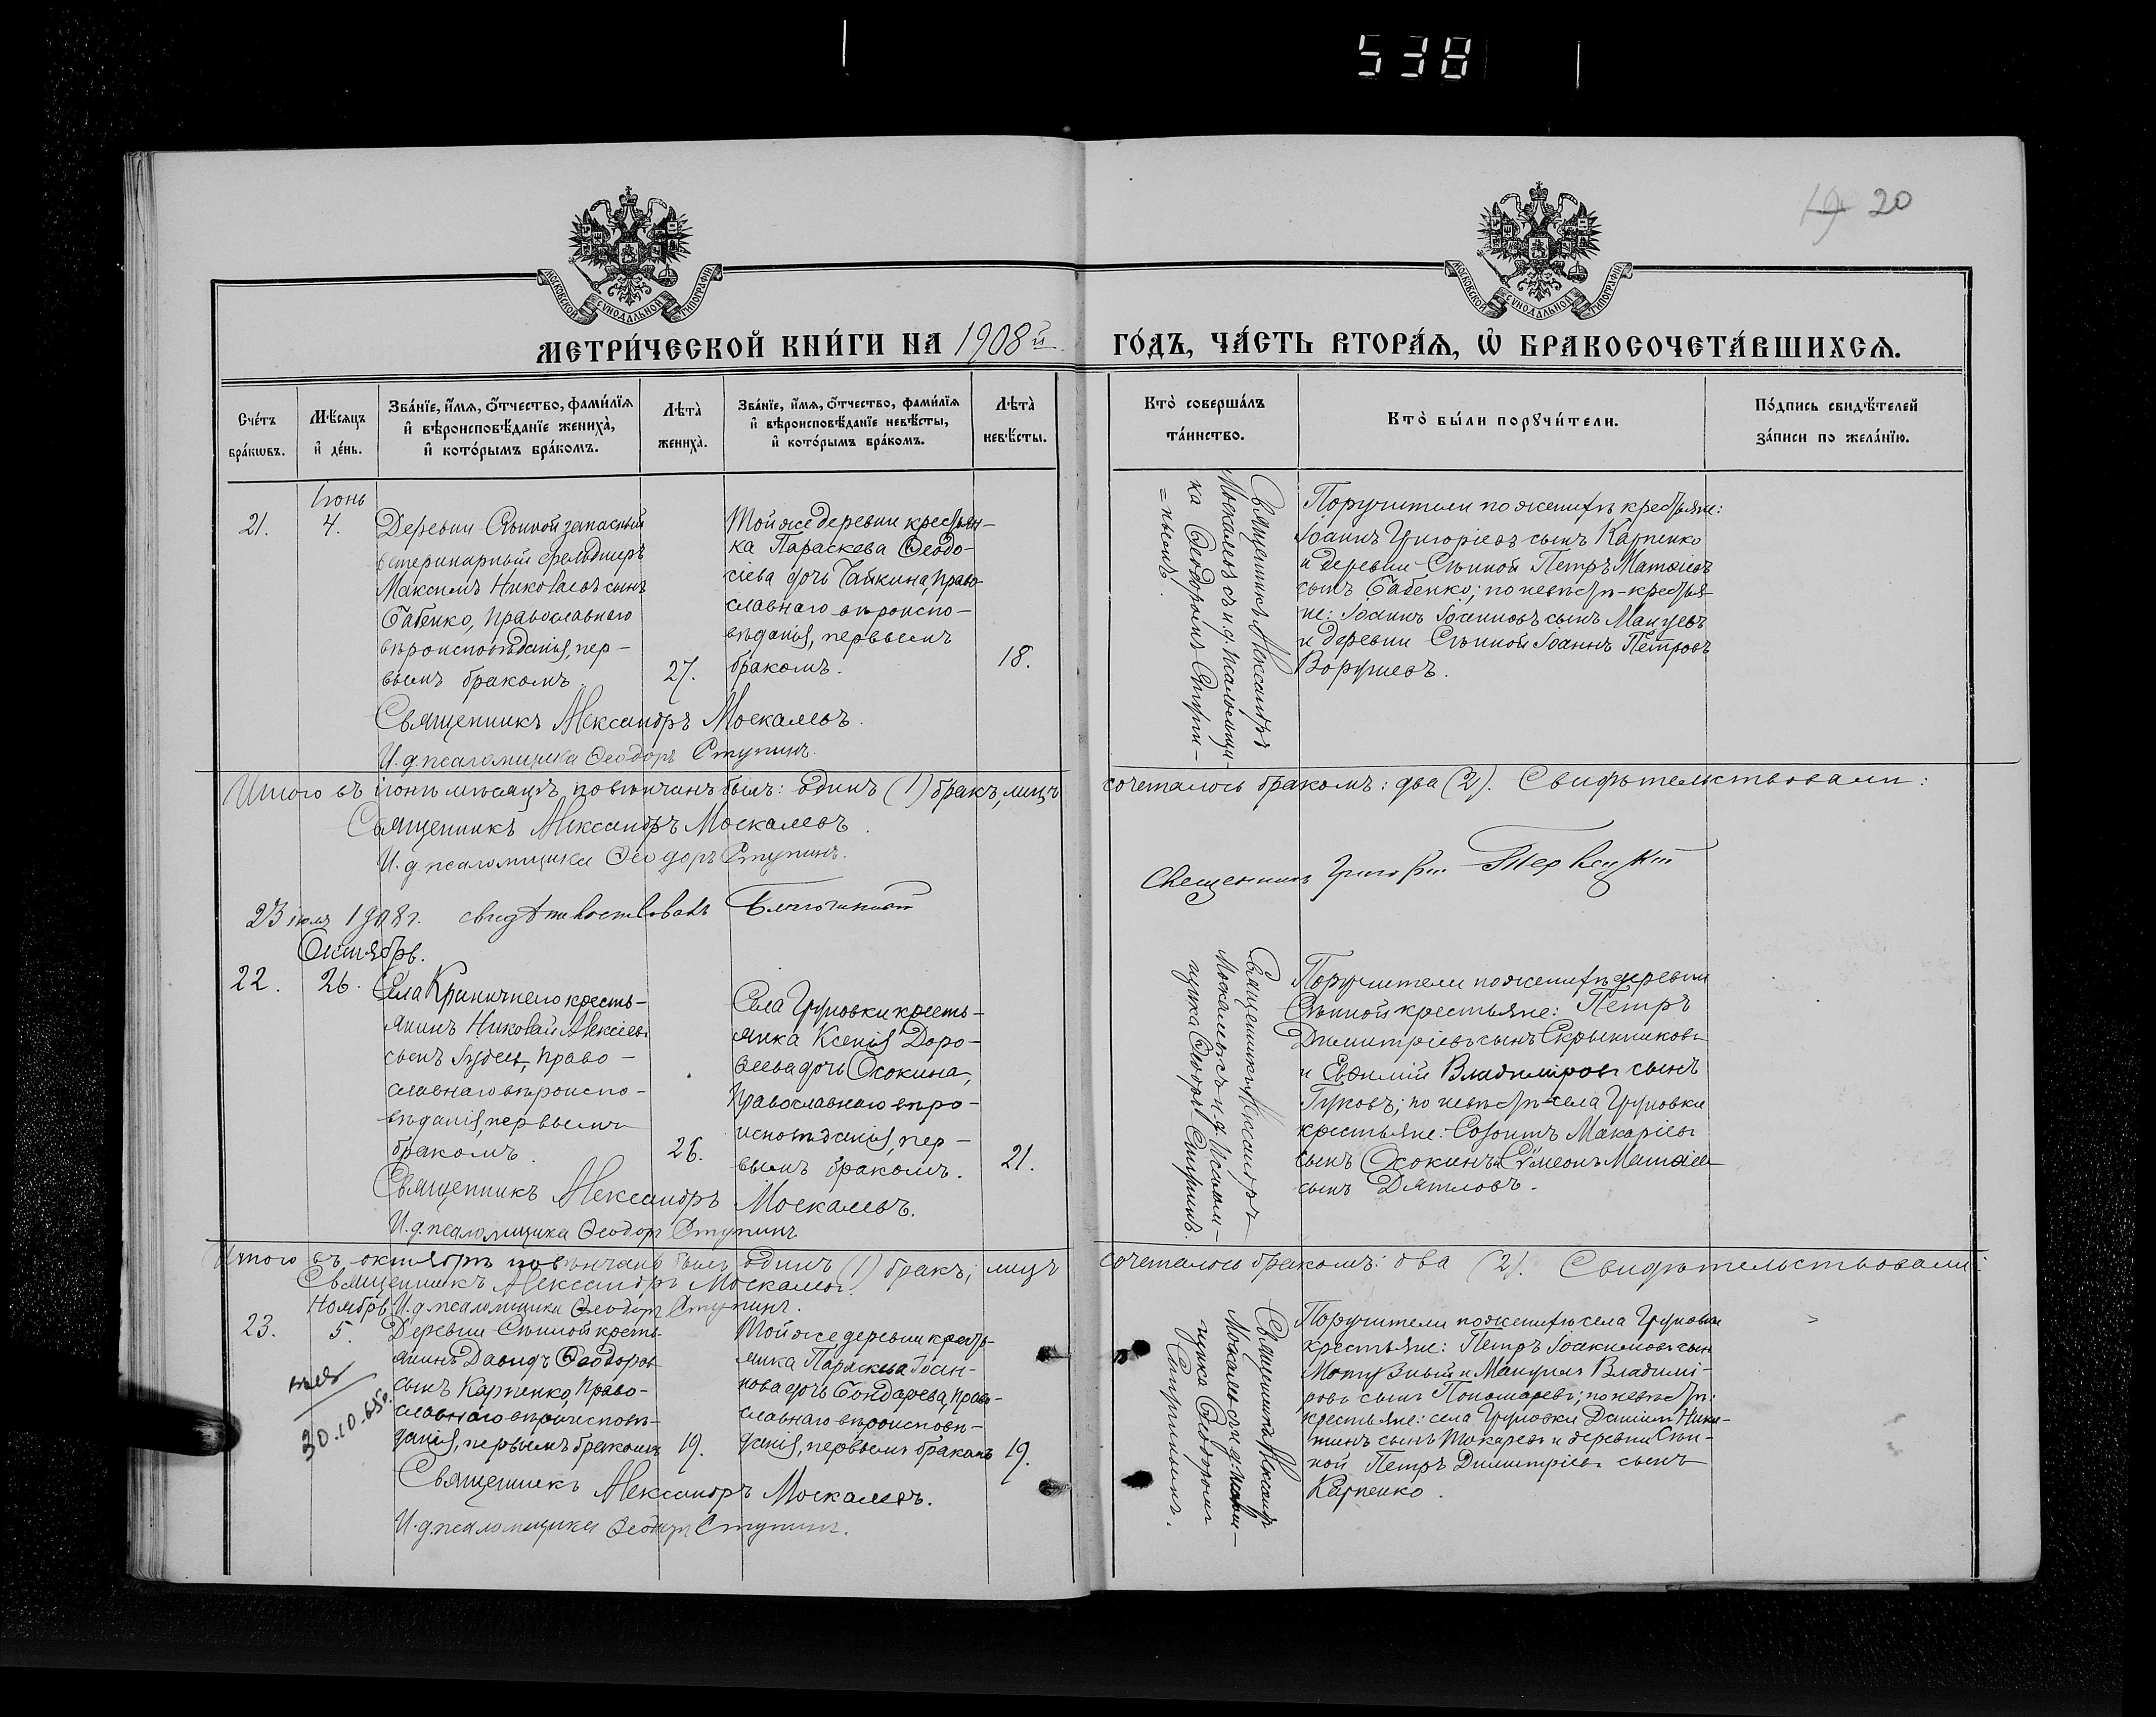 538
19 20
МОСКОВСКОЙ СѴНОДАЛЬНОЙ ТИПОГРАФІИ
МОСКОВСКОЙ СѴНОДАЛЬНОЙ ТИПОГРАФІИ
МЕТРИ́ЧЕСКОЙ КНИ́ГИ НА 1908й ГО́ДЪ, ЧА́СТЬ ВТОРА́Ѧ, Ѽ БРАКОСОЧЕТА́ВШИХСѦ.
Сче́тъ бра́кѡвъ.
Мѣ́сѧцъ и҆ де́нь.
Зва́нїе, и҆́мѧ, ѻ҆́тчество, фами́лїѧ
и҆ вѣроисповѣ́данїе жениха̀,
и҆ кото́рымъ бра́комъ.
Лѣта̀ жениха̀.
Зва́нїе, и҆́мѧ, ѻ҆́тчество, фами́лїѧ
и҆ вѣроисповѣ́данїе невѣ́сты,
и҆ кото́рымъ бра́комъ.
Лѣта̀ невѣ́сты.
Кто̀ соверша́лъ та́инство.
Кто̀ бы́ли порꙋчи́тели.
По́дпись свидѣ́телей
за́писи по жела́нїю.
Іюнь
21.
4.
Деревни Сѣнной запасный
ветеринарный фельдшеръ
Максимъ Николаевъ сынъ
Бабенко, православнаго
вѣроисповѣданія, пер-
вымъ бракомъ.
27.
Той же деревни крестьян-
ка Параскева Ѳеодо-
сіева дочь Чайкина, право-
славнаго вѣроиспо-
вѣданія, первымъ
бракомъ.
18.
Священникъ Александръ
Москалевъ съ и. д. псаломщи-
ка Ѳеодоромъ Ступи-
=нымъ.
Поручители по женихѣ крестьяне:
Іоаннъ Григоріевъ сынъ Карпенко
и деревни Сѣнной Петръ Матѳіевъ
сынъ Бабенко; по невѣстѣ - крестья-
не: Іоаннъ Іоанновъ сынъ
и деревни Сѣнной Іоаннъ Петровъ
Священникъ Александръ Москалевъ.
И. д. псаломщика Ѳеодоръ Ступинъ.
Итого въ іюнѣ мѣсяцѣ повѣнчанъ былъ: одинъ (1) бракъ, лицъ сочеталось бракомъ: два (2). Свидѣтельствовали:
Священникъ Александръ Москалевъ.
И. д. псаломщика Ѳеодоръ Ступинъ.
23 іюля 1908 г. свидѣтельствовалъ Благочинный
Священникъ Григорій
Октябрь.
22.
26.
Села Криничнаго кресть-
янинъ Николай Алексіевъ
сынъ право-
славнаго вѣроиспо-
вѣданія, первымъ
бракомъ.
26.
Села Груповки кресть-
янка Ксенія Доро-
ѳеева дочь Осокина,
православнаго вѣро-
исповѣданія, пер-
вымъ бракомъ.
21.
Священникъ Александръ
Москалевъ съ и. д. псалом-
щика Ѳеодоръ Ступинъ.
Поручители по женихѣ деревни
Сѣнной крестьяне: Петръ
Димитріевъ сынъ Скрынниковъ
и Евѳимій Владиміровъ сынъ
Гуковъ; по невѣстѣ - села Груповки
крестьяне: Созонтъ Макаріевъ
сынъ Осокинъ и Сѵмеонъ Матѳіевъ
сынъ Дятловъ.
Священникъ Александръ Москалевъ.
И. д. псаломщика Ѳеодоръ Ступинъ
Итого въ октябрѣ повѣнчанъ былъ одинъ (1) бракъ; лицъ сочеталось бракомъ: два (2). Свидѣтельствовали:
Священникъ Александръ Москалевъ.
Ноябрь И. д. псаломщика Ѳеодоръ Ступинъ.
23.
5.
30.10.65г.
Деревни Сѣнной кресть-
янинъ Давидъ Ѳеодоровъ
сынъ Карпенко, право-
славнаго вѣроисповѣ-
данія, первымъ бракомъ
19.
Той же деревни кресть-
янка Параскева Іоан-
нова дочь Бондарева, право-
славнаго вѣроисповѣ-
данія, первымъ бракомъ
19.
Священникъ Александръ
Москалевъ съ и. д. псалом-
щика Ѳеодоромъ
Ступинымъ.
Поручители по женихѣ села Груповки
крестьяне: Петръ Іоакимовъ сынъ
и Владимі-
ровъ сынъ Пономаревъ; по невѣстѣ:
крестьяне: села Груповки Даніилъ Ники-
тинъ сынъ Токаревъ и деревни Сѣн-
ной Петръ Димитріевъ сынъ
Карпенко.
Священникъ Александръ Москалевъ.
И. д. псаломщика Ѳеодоръ Ступинъ.